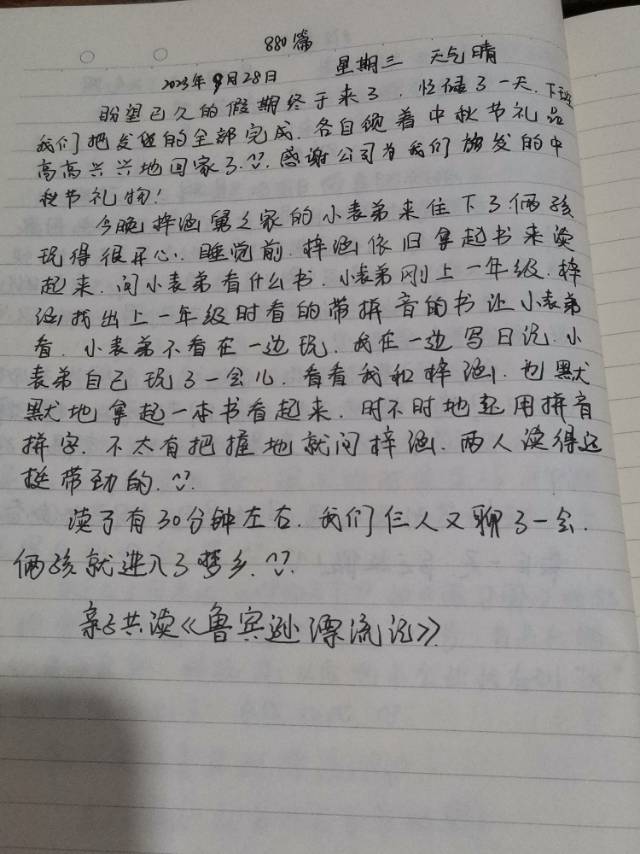 880篇
2023年9月28日 星期三 天气晴
盼望已久的假期终于来了. 忙碌了一天. 下班
我们把发货的全部完成. 各自领着中秋节礼品
高高兴兴地回家了. 感谢公司为我们放发的中
秋节礼物!
今晚梓涵舅舅家的小表弟来住下了俩孩
玩得很开心. 睡觉前. 梓涵依旧拿起书来读
起来. 问小表弟看什么书. 小表弟刚上一年级. 梓
涵找出上一年级时看的带拼音的书让小表弟
看. 小表弟不看在一边玩. 我在一边写日记. 小
表弟自己玩了一会儿. 看看我和梓涵. 也默
默地拿起一本书看起来. 时不时地起用拼音
拼字. 不太有把握地就问梓涵. 两人读得还
挺带劲的.
读了有30分钟左右. 我们仨人又聊了一会.
俩孩就进入了梦乡.
亲子共读《鲁宾逊漂流记》.